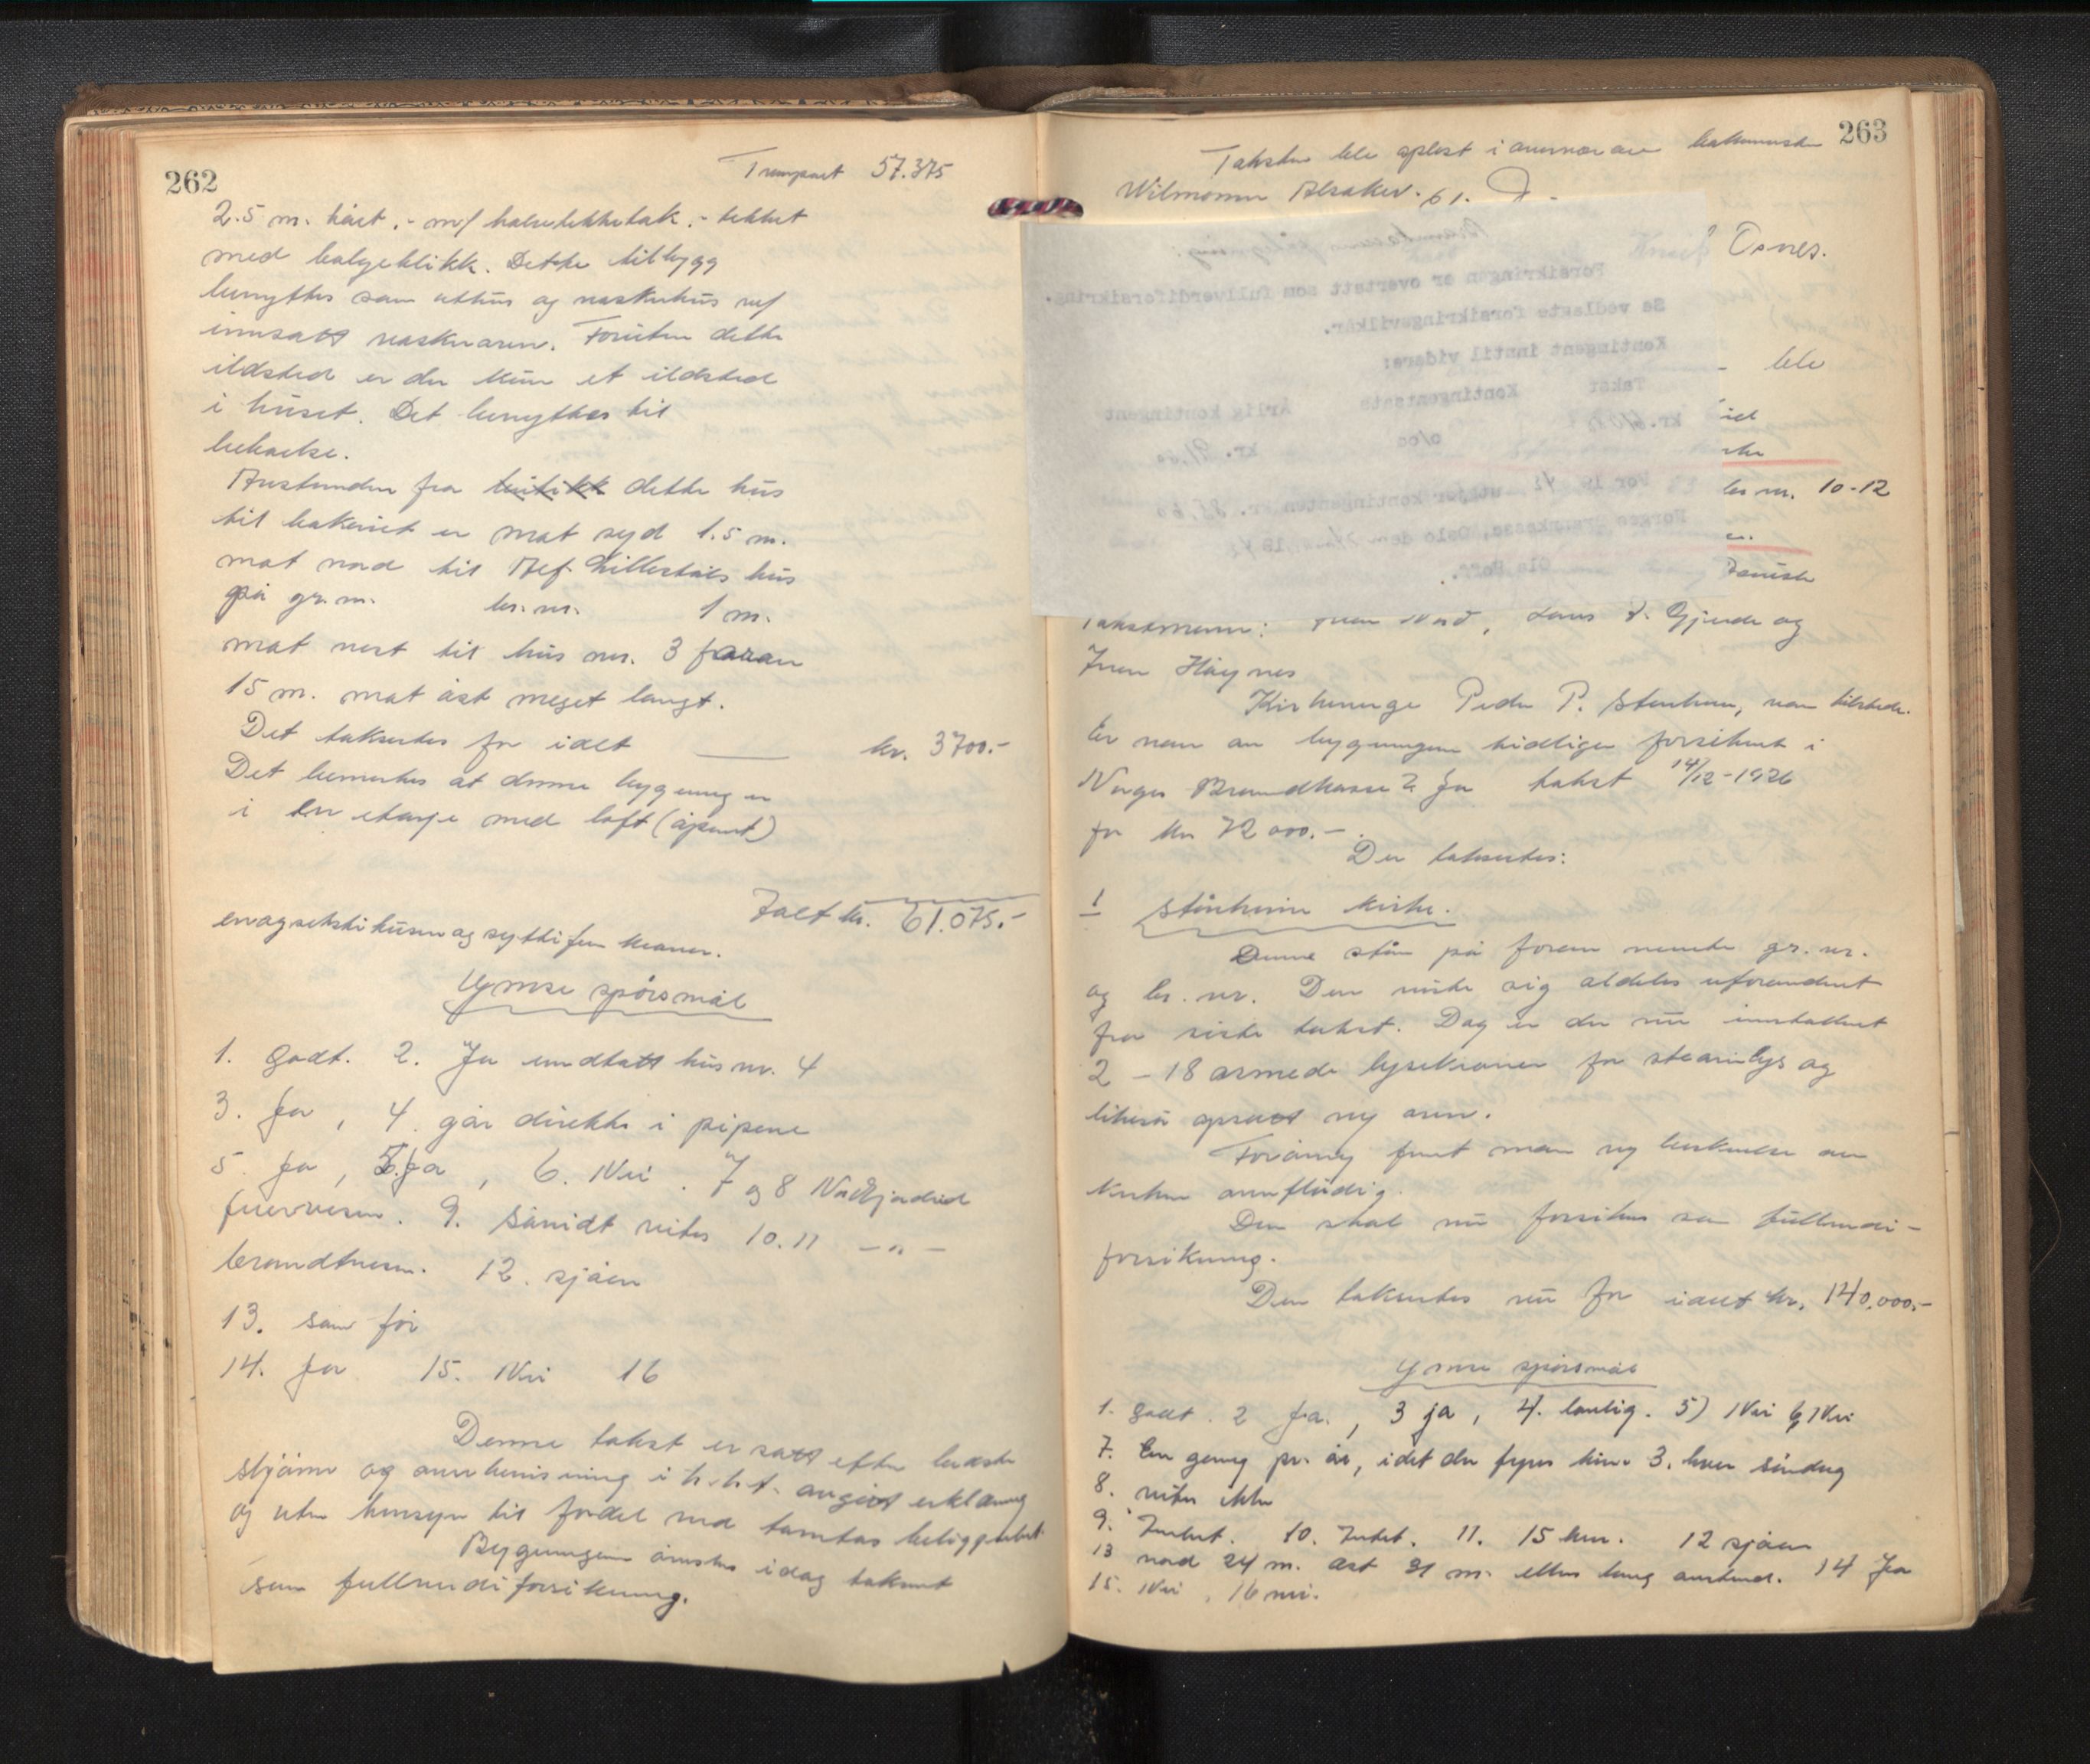 262
Transport 57.375
2.5 m. høit, - m/ halvtekketak, - tekket
med bølgeblikk. Dette tilbygg
benyttes som uthus og vaskehus m/
innsatt vaskeovn. Foruten dette
ildsted er der kun et ildsted
i huset. Det benyttes til
beboelse.
Avstanden fra butikk dette hus
til bakeriet er mot syd 1.5 m.
mot nord til Alf. Lillestøls hus
på gr.nr. br.nr. 1 m.
mot vest til hus nr. 3 foran
15 m. mot øst meget langt.
Det takseres for ialt kr. 3700.-
Det bemerkes at denne bygning er
i en etasje med loft (åpent)
Ialt kr. 61.075.-
enogsekstitusenogsyttifem kroner.
Ymse spørsmål
1. Godt. 2. Ja undtatt hus nr. 4
3. Ja, 4. går direkte i pipene
5. Ja, 6. Nei. 7 og 8 Nordfjordeid
fuervesen. 9. Såvidt vites 10. 11 -"-
brandtvesen. 12. sjøen
13. som før
14. Ja 15. Nei 16
Denne takst er satt efter bedste
skjønn og overbevisning i h.h.t. avgitt erklæring
og uten hensyn til fordel ved tomtas beliggenhet.
Bygningene ønskes idag taksert
som fullverdiforsikring.
263
Taksten ble oplest i overvær av bakermester
Wilmann Alsaker. 61.
Osnes.
ble
br nr. 10-12
Forsikringen er overtatt som fullverdiforsikring.
Se vedlagte forsikringsvilkår.
Kontingent inntil videre:
Takst Kontingentsats Årlig kontingent
kr. o/oo kr.
For 19 utgjør kontingenten kr.
Norges Brannkasse, Oslo den 19
Takstmenn: Iver Nord, Lars J. Gjerde og
Iver Høynes
Kirkeverge Peder P. Stenheim, var tilstede.
Er noen av bygningene tidligere forsikret i
Norges Brandkasse? Ja takst 14/12-1926
for kr 72 000.-
Der takseres:
1 Stårheim kirke.
Denne står på foran nevnte gr. nr.
og br. nr. Den viste sig aldeles uforandret
fra siste takst. Dog er der nu innstallert
2 - 18 armede lysekroner for stearinlys og
likeså opsatt ny ovn.
Forøvrig fant man ny beskrivelse av
kirken overflødig.
Den skal nu forsikres som fullverdi-
forsikring.
Den takseres nu for ialt kr. 140.000.-
Ymse spørsmål
1. Godt. 2 Ja., 3 ja, 4. lovlig. 5) Nei 6) Nei
7. En gang pr. år, idet der fyres hver 3. hver søndag
8. vites ikke
9. Intet. 10. Intet. 11. 15 km. 12 sjøen
13 nord 24 m. øst 31 m. ellers lang avstand. 14 Ja
15. Nei, 16 nei.